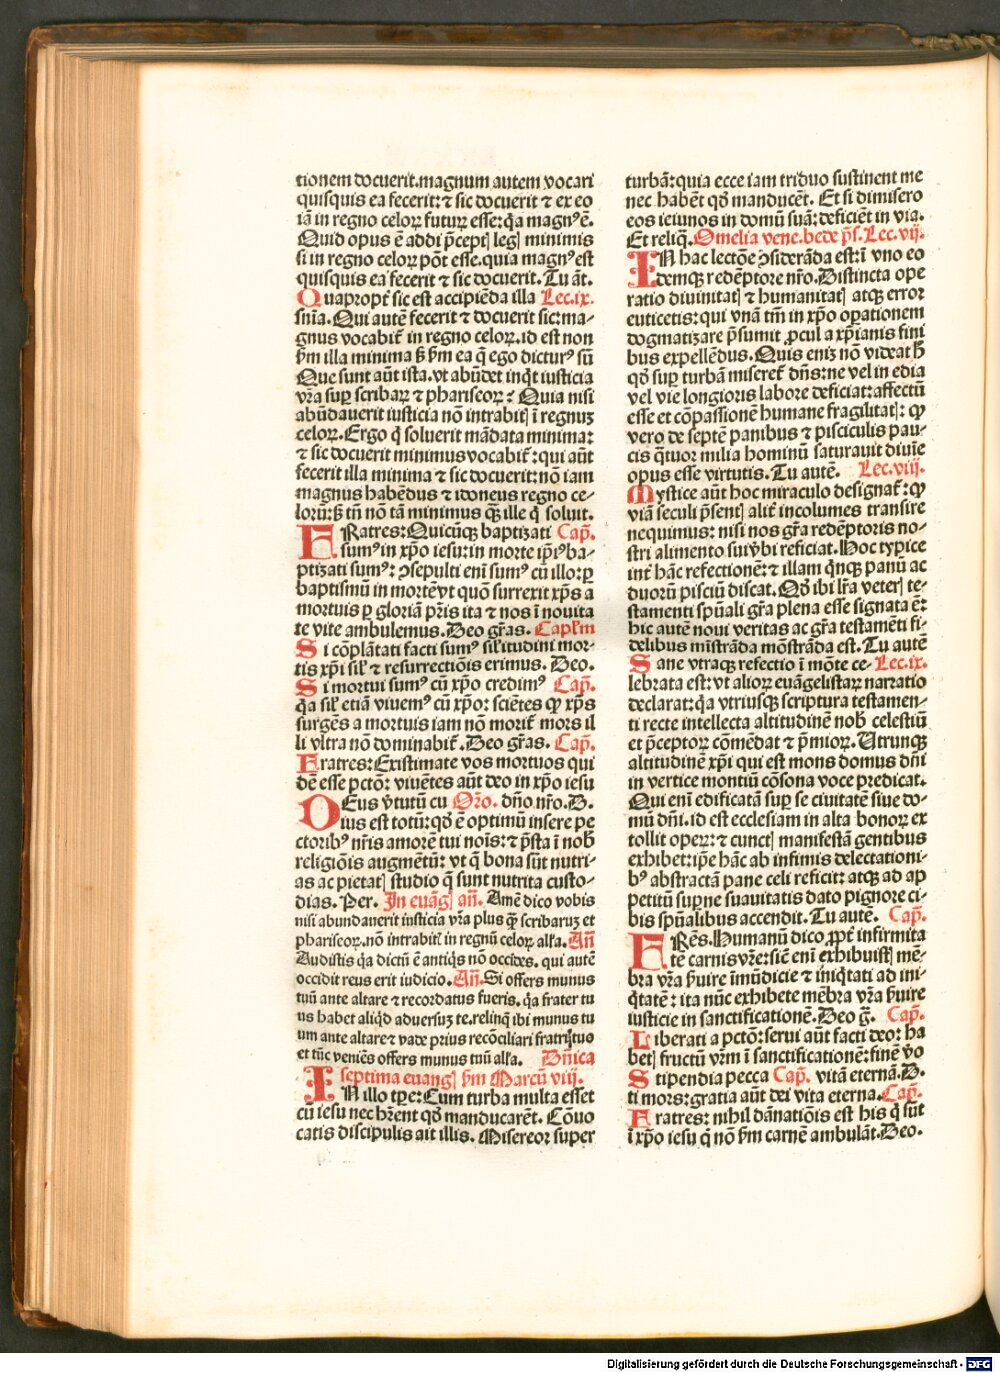 tionem docuerit.magnum autem vocari
quisquis ea fecerit: ⁊ sic docuerit ⁊ ex eo
iā in regno celoꝝ futuꝝ esse: q̄a magnꝰ ē.
Quid opus ē addi p̄ceptꝭ legꝭ minimis
si in regno celoꝝ pōt esse.quia magnꝰ est
quisquis ea fecerit ⁊ sic docuerit.Tu āt.
Quapropt̄ sic est accipiēda illa Lec.ix.
snīa.Qui autē fecerit ⁊ docuerit sic: ma-
gnus vocabit̄ in regno celoꝝ.id est non
ẜm illa minima ẜ ẜm ea q̄ ego dicturꝰ sū
Que sunt aūt ista.vt abūdet inq̇t iusticia
vr̄a suꝑ scribaꝝ ⁊ phariseoꝝ: Quia nisi
abūdauerit iusticia nō intrabitꝭ ī regnuꝫ
celoꝝ.Ergo q̇ soluerit mādata minima:
⁊ sic docuerit minimus vocabit̄: qui aūt
fecerit illa minima ⁊ sic docuerit: nō iam
magnus habēdus ⁊ idoneus regno ce-
lorū: ẜ tn̄ nō tā minimus qꝫ̄ ille q̇ soluit.
FRatres: Quicūqꝫ baptizati Cap̄.
sumꝰ in xp̄o iesu: in morte ip̄iꝰ ba-
ptizati sumꝰ: ꝯsepulti enī sumꝰ cū illo: ꝑ
baptismū in mortē vt quō surrexit xp̄s a
mortuis ꝑ gloriā pr̄is ita ⁊ nos ī nouita
te vite ambulemus. Deo gr̄as. Capl̄m
Si cōplātati facti sumꝰ sil̄itudini mor-
tis xp̄i sil̄ ⁊ resurrectiōis erimus. Deo.
Si mortui sumꝰ cū xp̄o credimꝰ Cap̄.
q̄a sil̄ etiā viuemꝰ cū xp̄o: sciētes ꝙ xp̄s
surgēs a mortuis iam nō morit̄ mors il
li vltra nō dominabit̄.Deo gr̄as. Cap̄.
Fratres: Existimate vos mortuos qui
dē esse pctō: viuētes aūt deo in xp̄o iesu
DEus v̄tutū cu Or̄o. dn̄o nr̄o.D.
ius est totū: qd̄ ē optimū insere pe
ctoribꝰ nr̄is amorē tui noīs: ⁊ p̄sta ī nob̄
religiōis augmētū: vt q̄ bona sūt nutri-
as ac pietatꝭ studio q̄ sunt nutrita custo-
dias. Per. In euāgꝭ an̄. Amē dico vobis
nisi abundauerit iusticia vr̄a plus qꝫ̄ scribaruꝫ et
phariseoꝝ.nō intrabitꝭ in regnū celoꝝ all̄a. An̄
Audistis q̄a dictū ē antiq̇s nō occides. qui autē
occidit reus erit iudicio.An̄.Si offers munus
tuū ante altare ⁊ recordatus fueris. q̄a frater tu
us habet aliq̇d aduersuꝫ te.relinq̄ ibi munus tu
um ante altare ⁊ vade prius recōciliari fratri tuo
et tūc veniēs offers munus tuū all̄a. Dn̄ica
septima euangꝭ ẜm Marcū viij.
IN illo tꝑe: Cum turba multa esset
cū iesu nec hr̄ent qd̄ manducarēt. Cōuo
catis discipulis ait illis. Misereor super
turbā: quia ecce iam triduo sustinent me
nec habēt qd̄ manducēt. Et si dimisero
eos ieiunos in domū suā: deficiēt in via.
Et reliq̄. Omelia vene.bede p̄s.Lec.vij.
IN hac lectōe ꝯsiderāda est: ī vno eo
demqꝫ redēptore nr̄o.Distincta ope
ratio diuinitatꝭ ⁊ humanitatꝭ atqꝫ error
euticetis: qui vnā tm̄ in xp̄o oꝑationem
dogmatizare p̄sumit ꝓcul a xp̄ianis fini
bus expellēdus.Quis eniꝫ nō videat h̄
qd̄ suꝑ turbā miseret̄ dn̄s: ne vel in edia
vel vie longioris labore deficiat: affectū
esse et cōpassionē humane fragilitatꝭ: ꝙ
vero de septē panibus ⁊ pisciculis pau-
cis q̇tuor milia hominū saturauit diuīe
opus esse virtutis.Tu autē. Lec.viij.
Mystice aūt hoc miraculo designat̄: ꝙ
viā seculi p̄sentꝭ alit̄ incolumes transire
nequimus: nisi nos gr̄a redēptoris no-
stri alimento sui v̄bi reficiat.Hoc typice
int̄ hāc refectionē: ⁊ illam q̇nqꝫ panū ac
duorū pisciū discat. Qd̄ ibi lr̄a veterꝭ te-
stamenti spūali gr̄a plena esse signata ē:
hic autē noui veritas ac gr̄a testamēti fi-
delibus mīstrāda mōstrāda est.Tu autē
Sane vtraqꝫ refectio ī mōte ce- Lec.ix.
lebrata est: vt alioꝝ euāgelistaꝝ narratio
declarat: q̄a vtriusqꝫ scriptura testamen-
ti recte intellecta altitudinē nob̄ celestiū
et p̄ceptoꝝ cōmēdat ⁊ p̄mioꝝ.Utrunqꝫ
altitudinē xp̄i qui est mons domus dn̄i
in vertice montiū cōsona voce predicat.
Qui enī edificatā suꝑ se ciuitatē siue do-
mū dn̄i.id est ecclesiam in alta bonoꝝ ex
tollit opeꝝ: ⁊ cunctꝭ manifestā gentibus
exhibet: ip̄e hāc ab infimis delectationi-
bꝰ abstractā pane celi reficit: atqꝫ ad ap
petitū suꝑne suauitatis dato pignore ci-
bis spūalibus accendit.Tu autē. Cap̄.
FRēs.Humanū dico ꝓpt̄ infirmita
tē carnis vr̄e: sic̄ enī exhibuistꝭ mē-
bra vr̄a ẜuire īmūdicie ⁊ iniq̇tati ad ini-
q̇tatē: ita nūc exhibete mēbra vr̄a ẜuire
iusticie in sanctificationē.Deo g̅. Cap̄.
Liberati a pctō: serui aūt facti deo: ha
betꝭ fructū vr̄m ī sanctificationē: finē v̄o
Stipendia pecca Cap̄. vitā eternā.D.
ti mors: gratia aūt dei vita eterna.Cap̄.
Fratres: nihil dānatiōis est his q̇ sūt
ī xp̄o iesu q̇ nō ẜm carnē ambulāt.Deo.
Digitalisierung gefördert durch die Deutsche Forschungsgemeinschaft - DFG